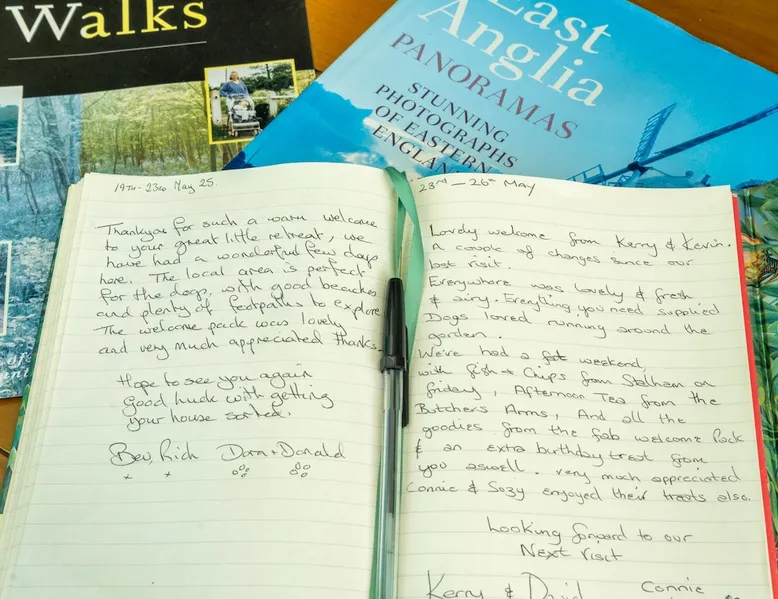 Walks
East
Anglia
PANORAMAS
STUNNING
PHOTOGRAPHS
OF EASTERN
ENGLAND
19TH - 23RD May 25.
Thankyou for such a warm welcome
to your great little retreat, we
have had a wonderful few days
here. The local area is perfect
for the dogs, with good beaches
and plenty of footpaths to explore
The welcome pack was lovely
and very much appreciated thanks.
Hope to see you again
Good luck with getting
your house sorted.
Bev, Rich Dora + Donald
23rd — 26th May
Lovely welcome from Kerry & Kevin.
A couple of changes since our
last visit.
Everywhere was lovely & fresh
& airy. Everything you need supplied
Dogs loved running around the
garden.
We've had a fab weekend,
with fish + Chips from Stalham on
friday, Afternoon Tea from the
Butchers Arms, And all the
goodies from the fab welcome Pack
& an extra birthday treat from
you aswell. very much appreciated
Connie & Sozy enjoyed their treats also.
Looking forward to our
Next Visit
Kerry & David Connie